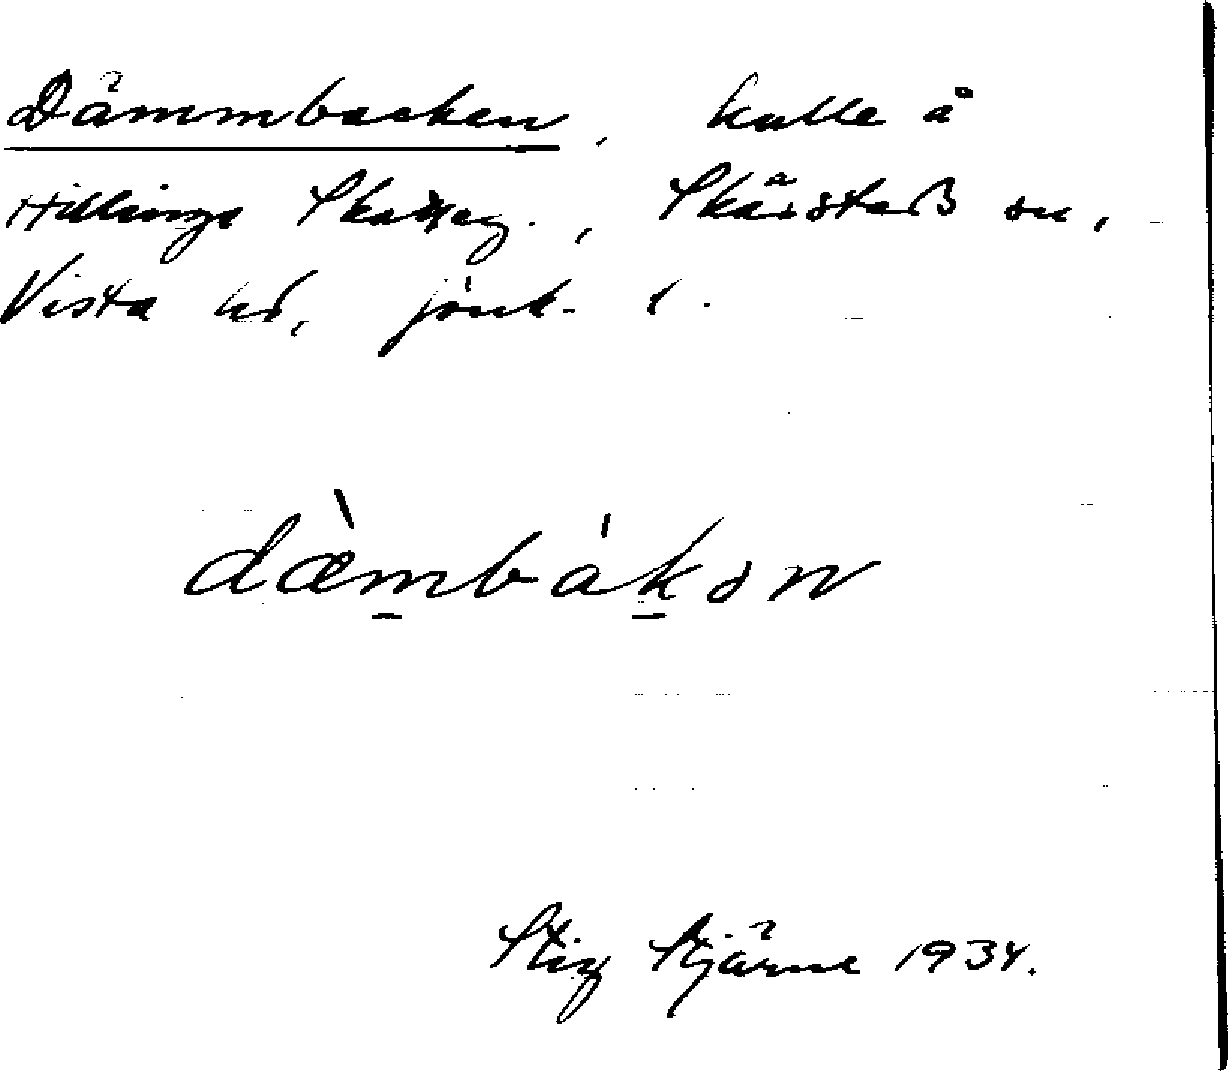 Dämmbacken, kulle å
Hillinge Skatteg., Skärstads sn,
Vista hd, Jönk. l.
dæ̀m̲bák̲ən
Stig Stjärne 1934.